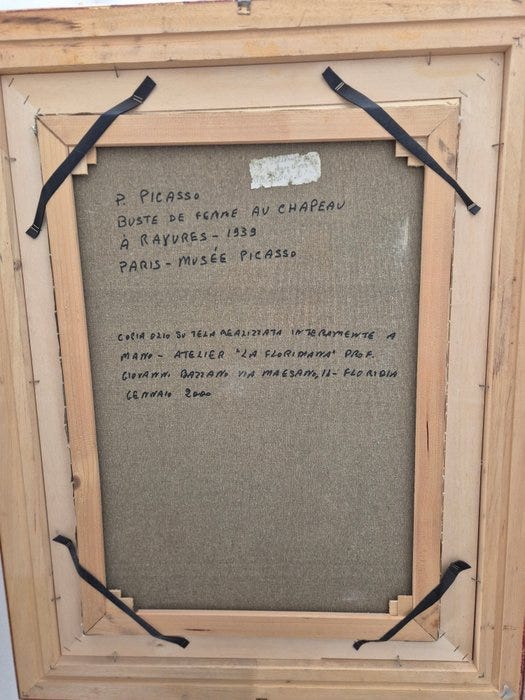 P. PICASSO
BUSTE DE FEMME AU CHAPEAU
À RAYURES - 1939
PARIS - MUSÉE PICASSO
COPIA OLIO SU TELA REALIZZATA INTERAMENTE A
MANO - ATELIER "LA FLORIDIANA" PROF.
GIOVANNI BAZZANO VIA MAESANO, 12 - FLORIDIA
GENNAIO 2000